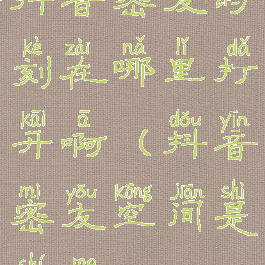 音密友
kè zài nǎ lǐ dǎ
刻在哪里打
kāi ā dǒu yīn
开啊（抖音
mì yǒu kōng jiān shì
密友空间是
me